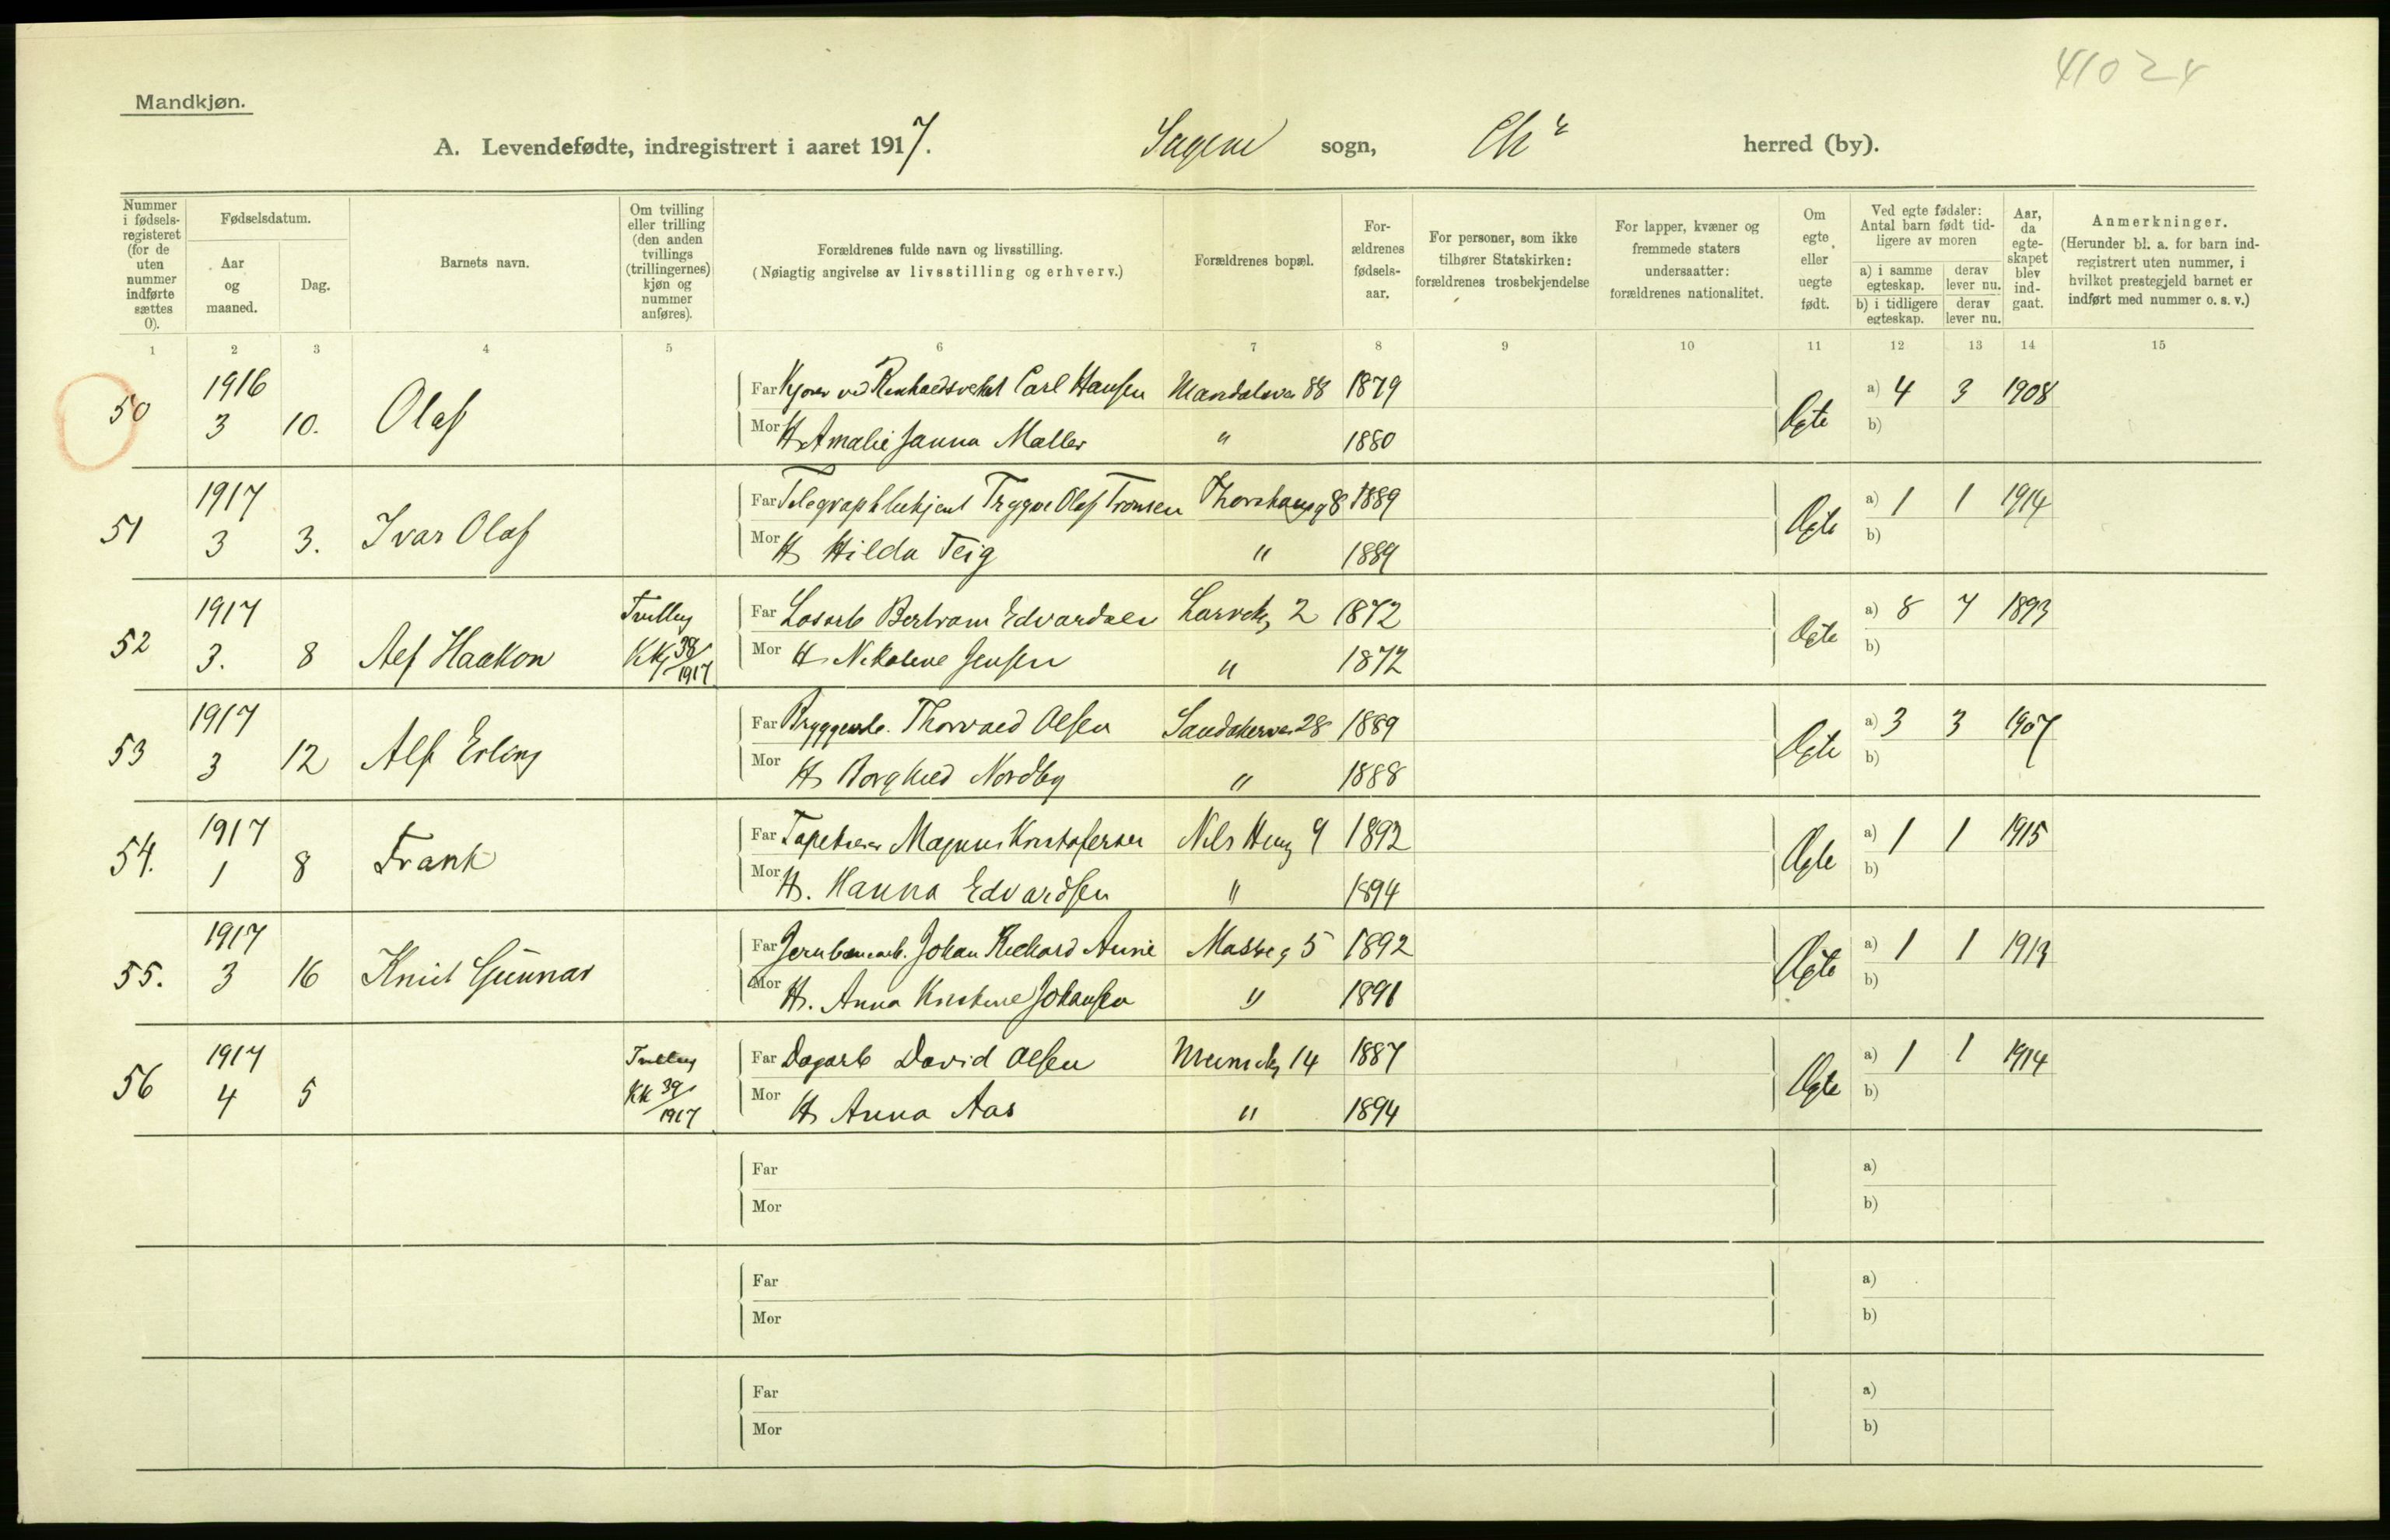 41024
Mandkjøn.
A. Levendefødte, indregistrert i aaret 1917. Sagene sogn, Chra herred (by).
Nummer i fødselsregisteret (for de uten nummer indførte sættes 0).
Fødselsdatum.
Aar og maaned.
Dag.
Barnets navn.
Om tvilling eller trilling (den anden tvillings (trillingernes) kjøn og nummer anføres).
Forældrenes fulde navn og livsstilling.
(Nøiagtig angivelse av livsstilling og erhverv.)
Forældrenes bopæl.
Forældrenes fødselsaar.
For personer, som ikke tilhører Statskirken: forældrenes trosbekjendelse
For lapper, kvæner og fremmede staters undersaatter: forældrenes nationalitet.
Om egte eller uegte født.
Ved egte fødsler: Antal barn født tidligere av moren
a) i samme egteskap.
derav lever nu.
b) i tidligere egteskap.
derav lever nu.
Aar, da egteskapet blev indgaat.
Anmerkninger.
(Herunder bl. a. for barn indregistrert uten nummer, i hvilket prestegjeld barnet er indført med nummer o. s. v.)
1 2 3 4 5 6 7 8 9 10 11 12 13 14 15
50 1916 3 10. Olaf Far Kjører ved Renholdsverket Carl Hansen Mandalsvei 88 1879 Egte a) 4 3 1908
Mor H. Amalie Janna Møller " 1880 b)
51 1917 3 3. Ivar Olaf Far Trygve Olaf Tronsen Thorshaugg 8 1889 Egte a) 1 1 1914
Mor H. Hilda Teig " 1889 b)
52 1917 3. 8 Alf Haakon Tvilling KK 38/1917 Far Losarb Bertram Edvardsen Larvikg 2 1872 Egte a) 8 7 1893
Mor H. Nikoline Jensen " 1872 b)
53 1917 3 12 Alf Erling Far Bryggearb. Thorvald Olsen Sandakervei 28 1889 Egte a) 3 3 1907
Mor H. Borghild Nordby " 1888 b)
54. 1917 1 8 Frank Far Tapetserer Magnus Kristofersen Nils Hueg 9 1892 Egte a) 1 1 1915
Mor H. Hanna Edvardsen " 1894 b)
55. 1917 3 16 Knut Gunnar Far Jernbanearb. Johan Rickard 5 1892 Egte a) 1 1 1913
Mor H. Anna Kristine Johansen " 1891 b)
56 1917 4 5 Tvilling KK 39/1917 Far Dagarb David Olsen 14 1887 Egte a) 1 1 1914
Mor H. Anna Aas " 1894 b)
Far a)
Mor b)
Far a)
Mor b)
Far a)
Mor b)